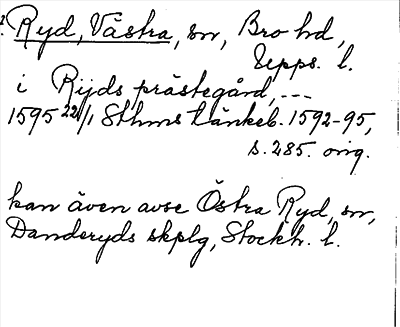 Ryd, Västra, sn, Bro hd,
Upps. l.
i Rijds prästegård, ---
1595 22/1 Sthms tänkeb. 1592-95,
s. 285. orig.
kan även avse Östra Ryd, sn,
Danderyds skplg, Stockh. l.